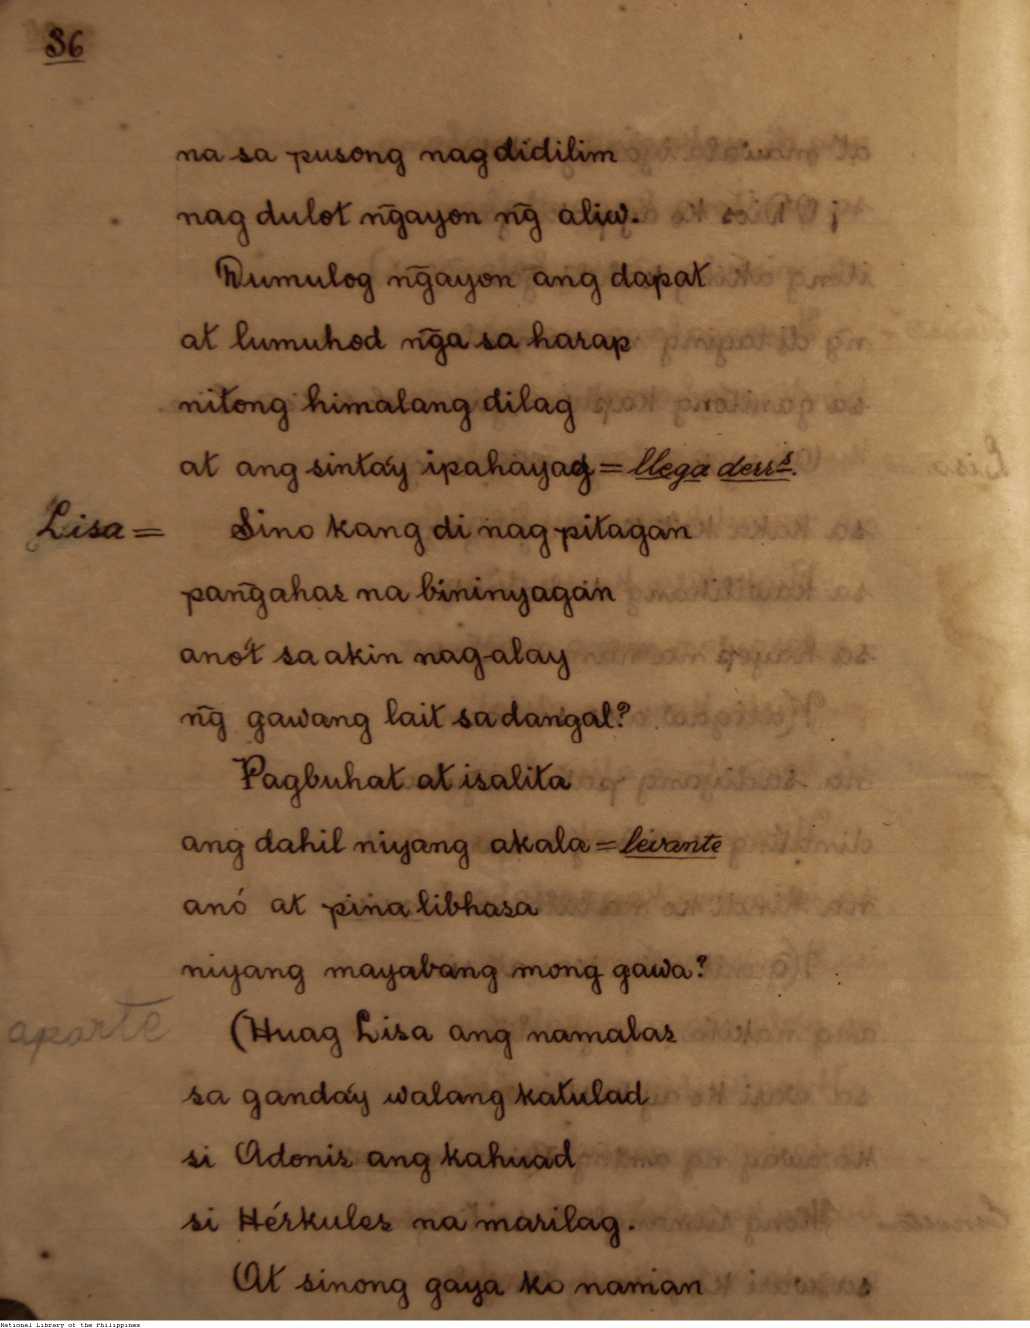 36
na sa pusong nag didilim
nag dulot n͠gayon n͠g aliw.
Dumulog n͠gayon ang dapat
at lumuhod n͠ga sa harap
nitong himalang dilag
at ang sintáy ipahayag = llega derrs.
Lisa = Sino kang di nag pitagan
pan͠gahas na bininyagan
anót sa akin nag-alay
n͠g gawang lait sa dangal?
Pagbuhat at isalita
ang dahil niyang akala = levante
anó at pina libhasa
niyang mayabang mong gawa?
aparte (Huag Lisa ang namalas
sa gandáy walang katulad
si Adonis ang kahuad
si Hérkules na marilag.
At sinong gaya ko naman
National Library of the Philippines